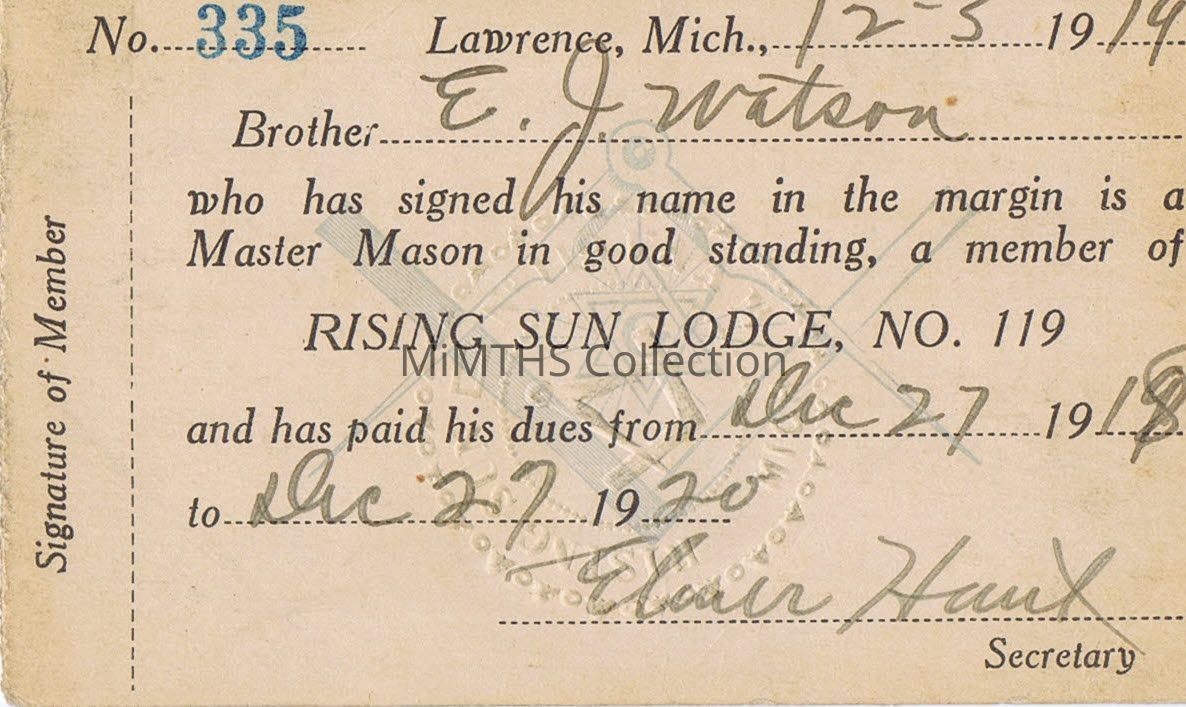 No. 335 Lawrence, Mich., 12-3 1919
Brother E. J. Watson
who has signed his name in the margin is a
Master Mason in good standing, a member of
RISING SUN LODGE, NO. 119
MiMTHS Collection
and has paid his dues from Dec 27 1918
to Dec 27 1920
Elmer
Secretary
Signature of Member